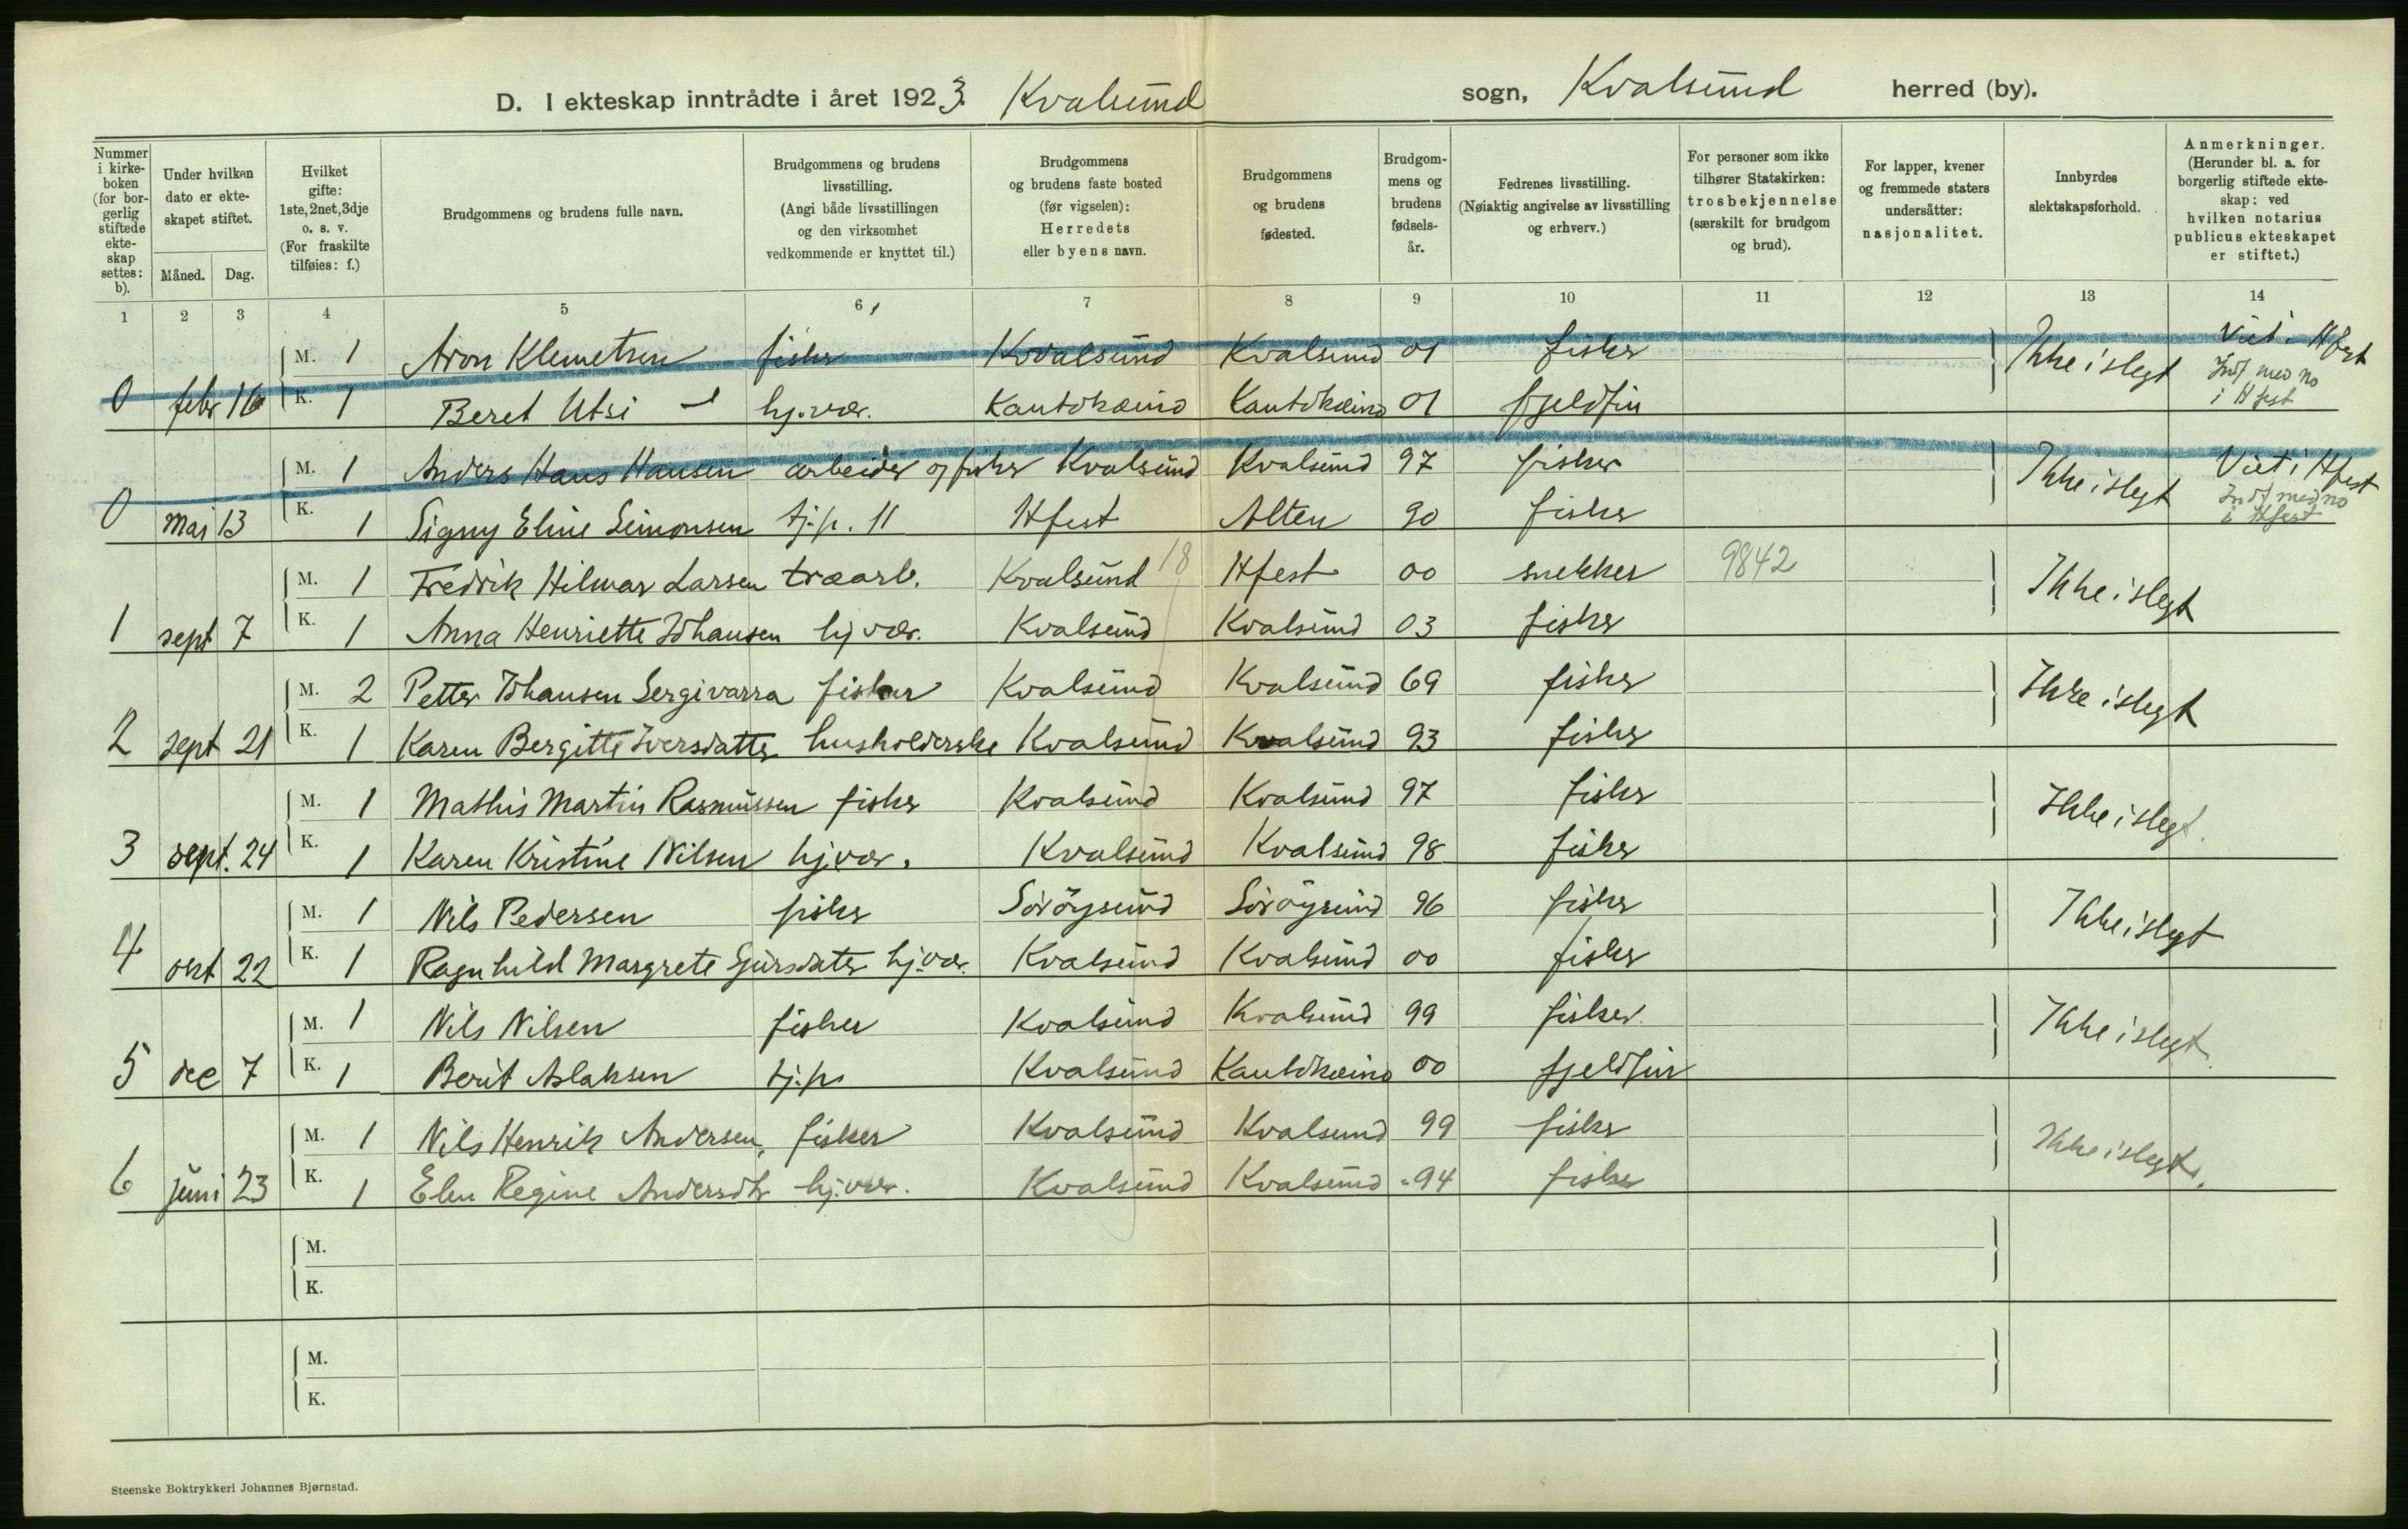 D. I ekteskap inntrådte i året 1923. Kvalsund sogn, Kvalsund herred (by).
Nummer i kirkeboken (for borgerlig stiftede ekteskap settes: b).
Under hvilken dato er ekteskapet stiftet.
Måned. Dag.
Hvilket gifte: 1ste, 2net, 3dje o. s. v. (For fraskilte tilføies: f.)
Brudgommens og brudens fulle navn.
Brudgommens og brudens livsstilling. (Angi både livsstillingen og den virksomhet vedkommende er knyttet til.)
Brudgommens og brudens faste bosted (før vigselen): Herredets eller byens navn.
Brudgommens og brudens fødested.
Brudgommens og brudens fødselsår.
Fedrenes livsstilling. (Nøiaktig angivelse av livsstilling og erhverv.)
For personer som ikke tilhører Statskirken: trosbekjennelse (særskilt for brudgom og brud).
For lapper, kvener og fremmede staters undersåtter: nasjonalitet.
Innbyrdes slektskapsforhold.
Anmerkninger. (Herunder bl. a. for borgerlig stiftede ekteskap: ved hvilken notarius publicus ekteskapet er stiftet.)
1 2 3 4 5 6 7 8 9 10 11 12 13 14
M. 1 Aron Klemetsen fisker Kvalsund Kvalsund 01 fisker Ikke i slegt Viet i Hfest
Indf med no
i Hfest
0 febr 16 K. 1 Beret Utsi hj.vær. Kautokeino Kautokeino 01 fjeldfin
M. 1 Anders Hans Hansen arbeider og fisker Kvalsund Kvalsund 97 fisker Ikke i slegt Viet i Hfest
Indf med no
i Hfest
0 mai 13 K. 1 Signy Eline Simonsen tj.p. 11 Hfest Alten 90 fisker
M. 1 Fredrik Hilmar Larsen træarb. Kvalsund 18 Hfest 00 snekker 9842 Ikke i slegt
1 sept 7 K. 1 Anna Henriette Johansen hj vær. Kvalsund Kvalsund 03 fisker
M. 2 Petter Johansen Sergivarra fisker Kvalsund Kvalsund 69 fisker Ikke i slegt
2 sept 21 K. 1 Karen Bergitte Iversdatter husholderske Kvalsund Kvalsund 93 fisker
M. 1 Mathis Martin Rasmussen fisker Kvalsund Kvalsund 97 fisker Ikke i slegt.
3 sept. 24 K. 1 Karen Kristine Nilsen hj.vær. Kvalsund Kvalsund 98 fisker
M. 1 Nils Pedersen fisker Söröysund Söröysund 96 fisker Ikke i slegt
4 okt 22 K. 1 Ragnhild Margrete Sjursdatter hj.vær. Kvalsund Kvalsund 00 fisker
M. 1 Nils Nilsen fisker Kvalsund Kvalsund 99 fisker. Ikke i slegt.
5 dec 7 K. 1 Berit Aslaksen tj.p. Kvalsund Kautokeino 00 fjeldfin
M. 1 Nils Henrik Andersen, fisker Kvalsund Kvalsund 99 fisker Ikke i slegt.
6 juni 23 K. 1 Elen Regine Andersdtr hj.vær. Kvalsund Kvalsund 94 fisker
M.
K.
M.
K.
Steenske Boktrykkeri Johannes Bjørnstad.